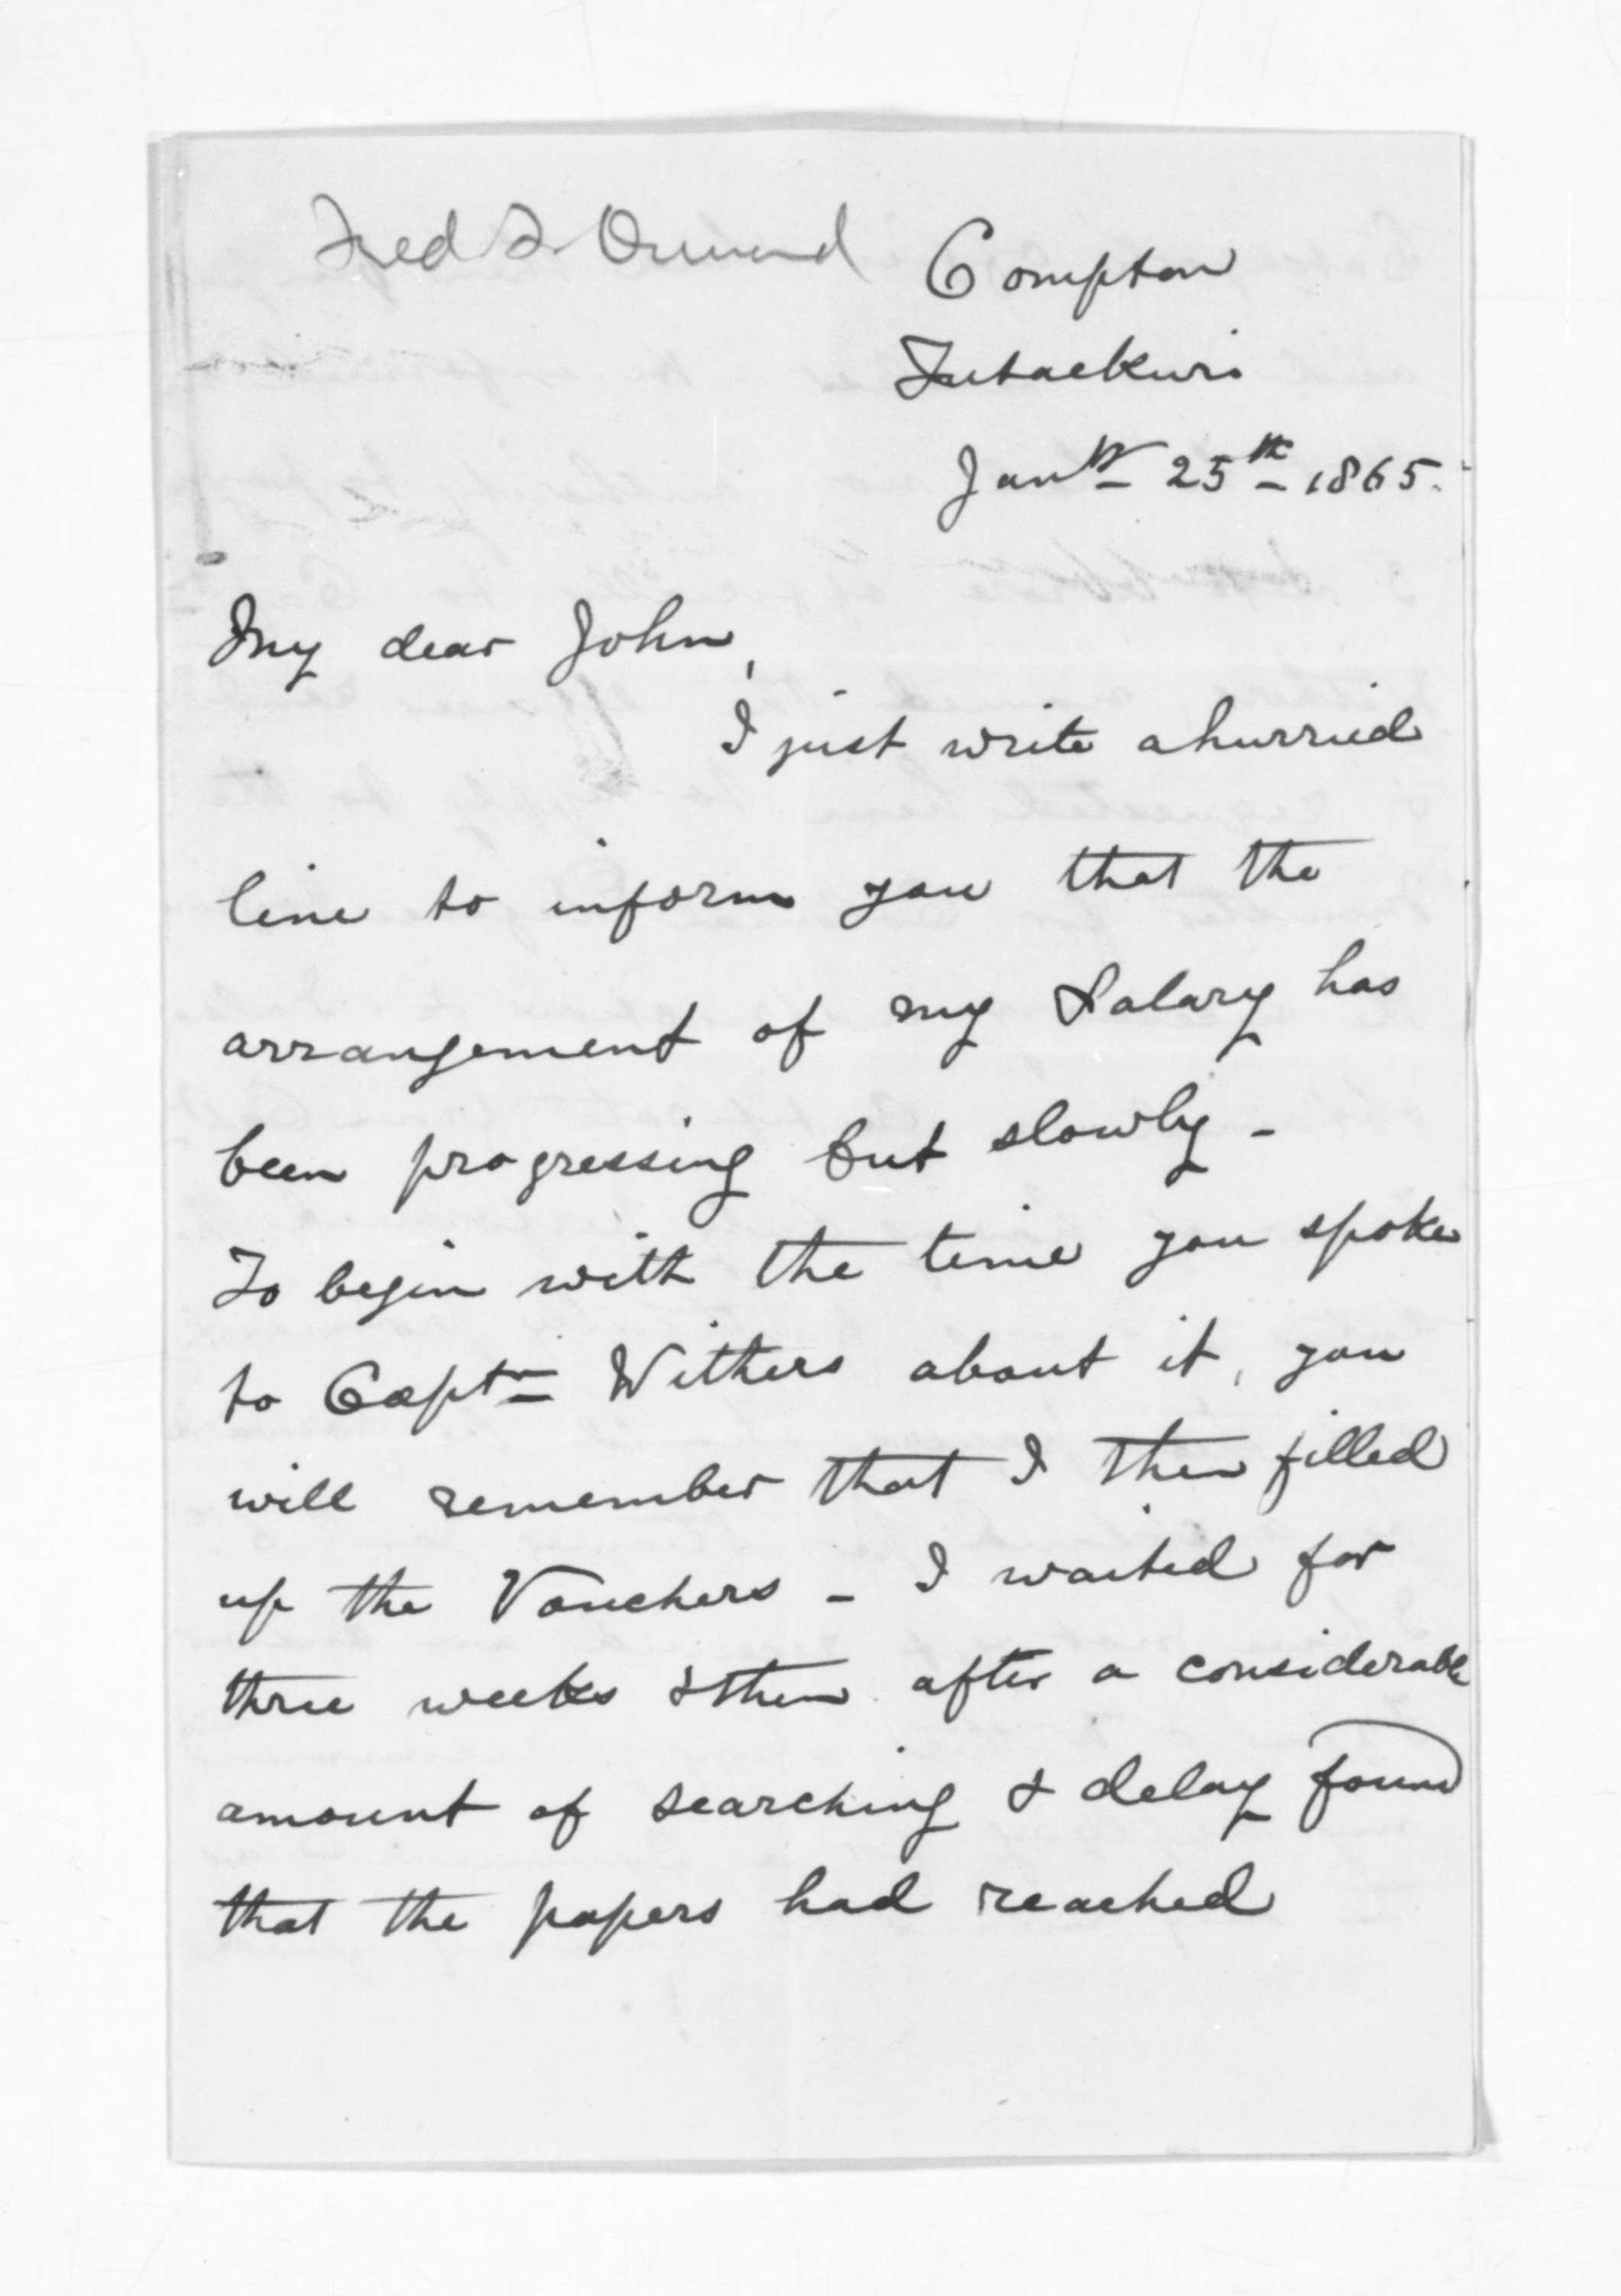 Fred J. Ormond
Compton
Tutaekuri
Jany 25th 1865.
My dear John,
I just write a hurried
line to inform you that the
arrangement of my Salary has
been progressing but slowly -
To begin with the time you spoke
to Captn Withers about it, you
will remember that I then filled
up the Vouchers - I waited for
three weeks & then after a considerable
amount of searching & delay found
that the papers had reached